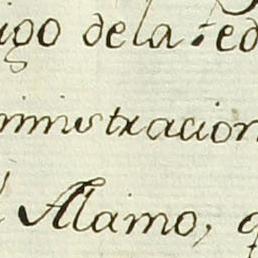 igo dela fed
ministracion
l Alamo, q